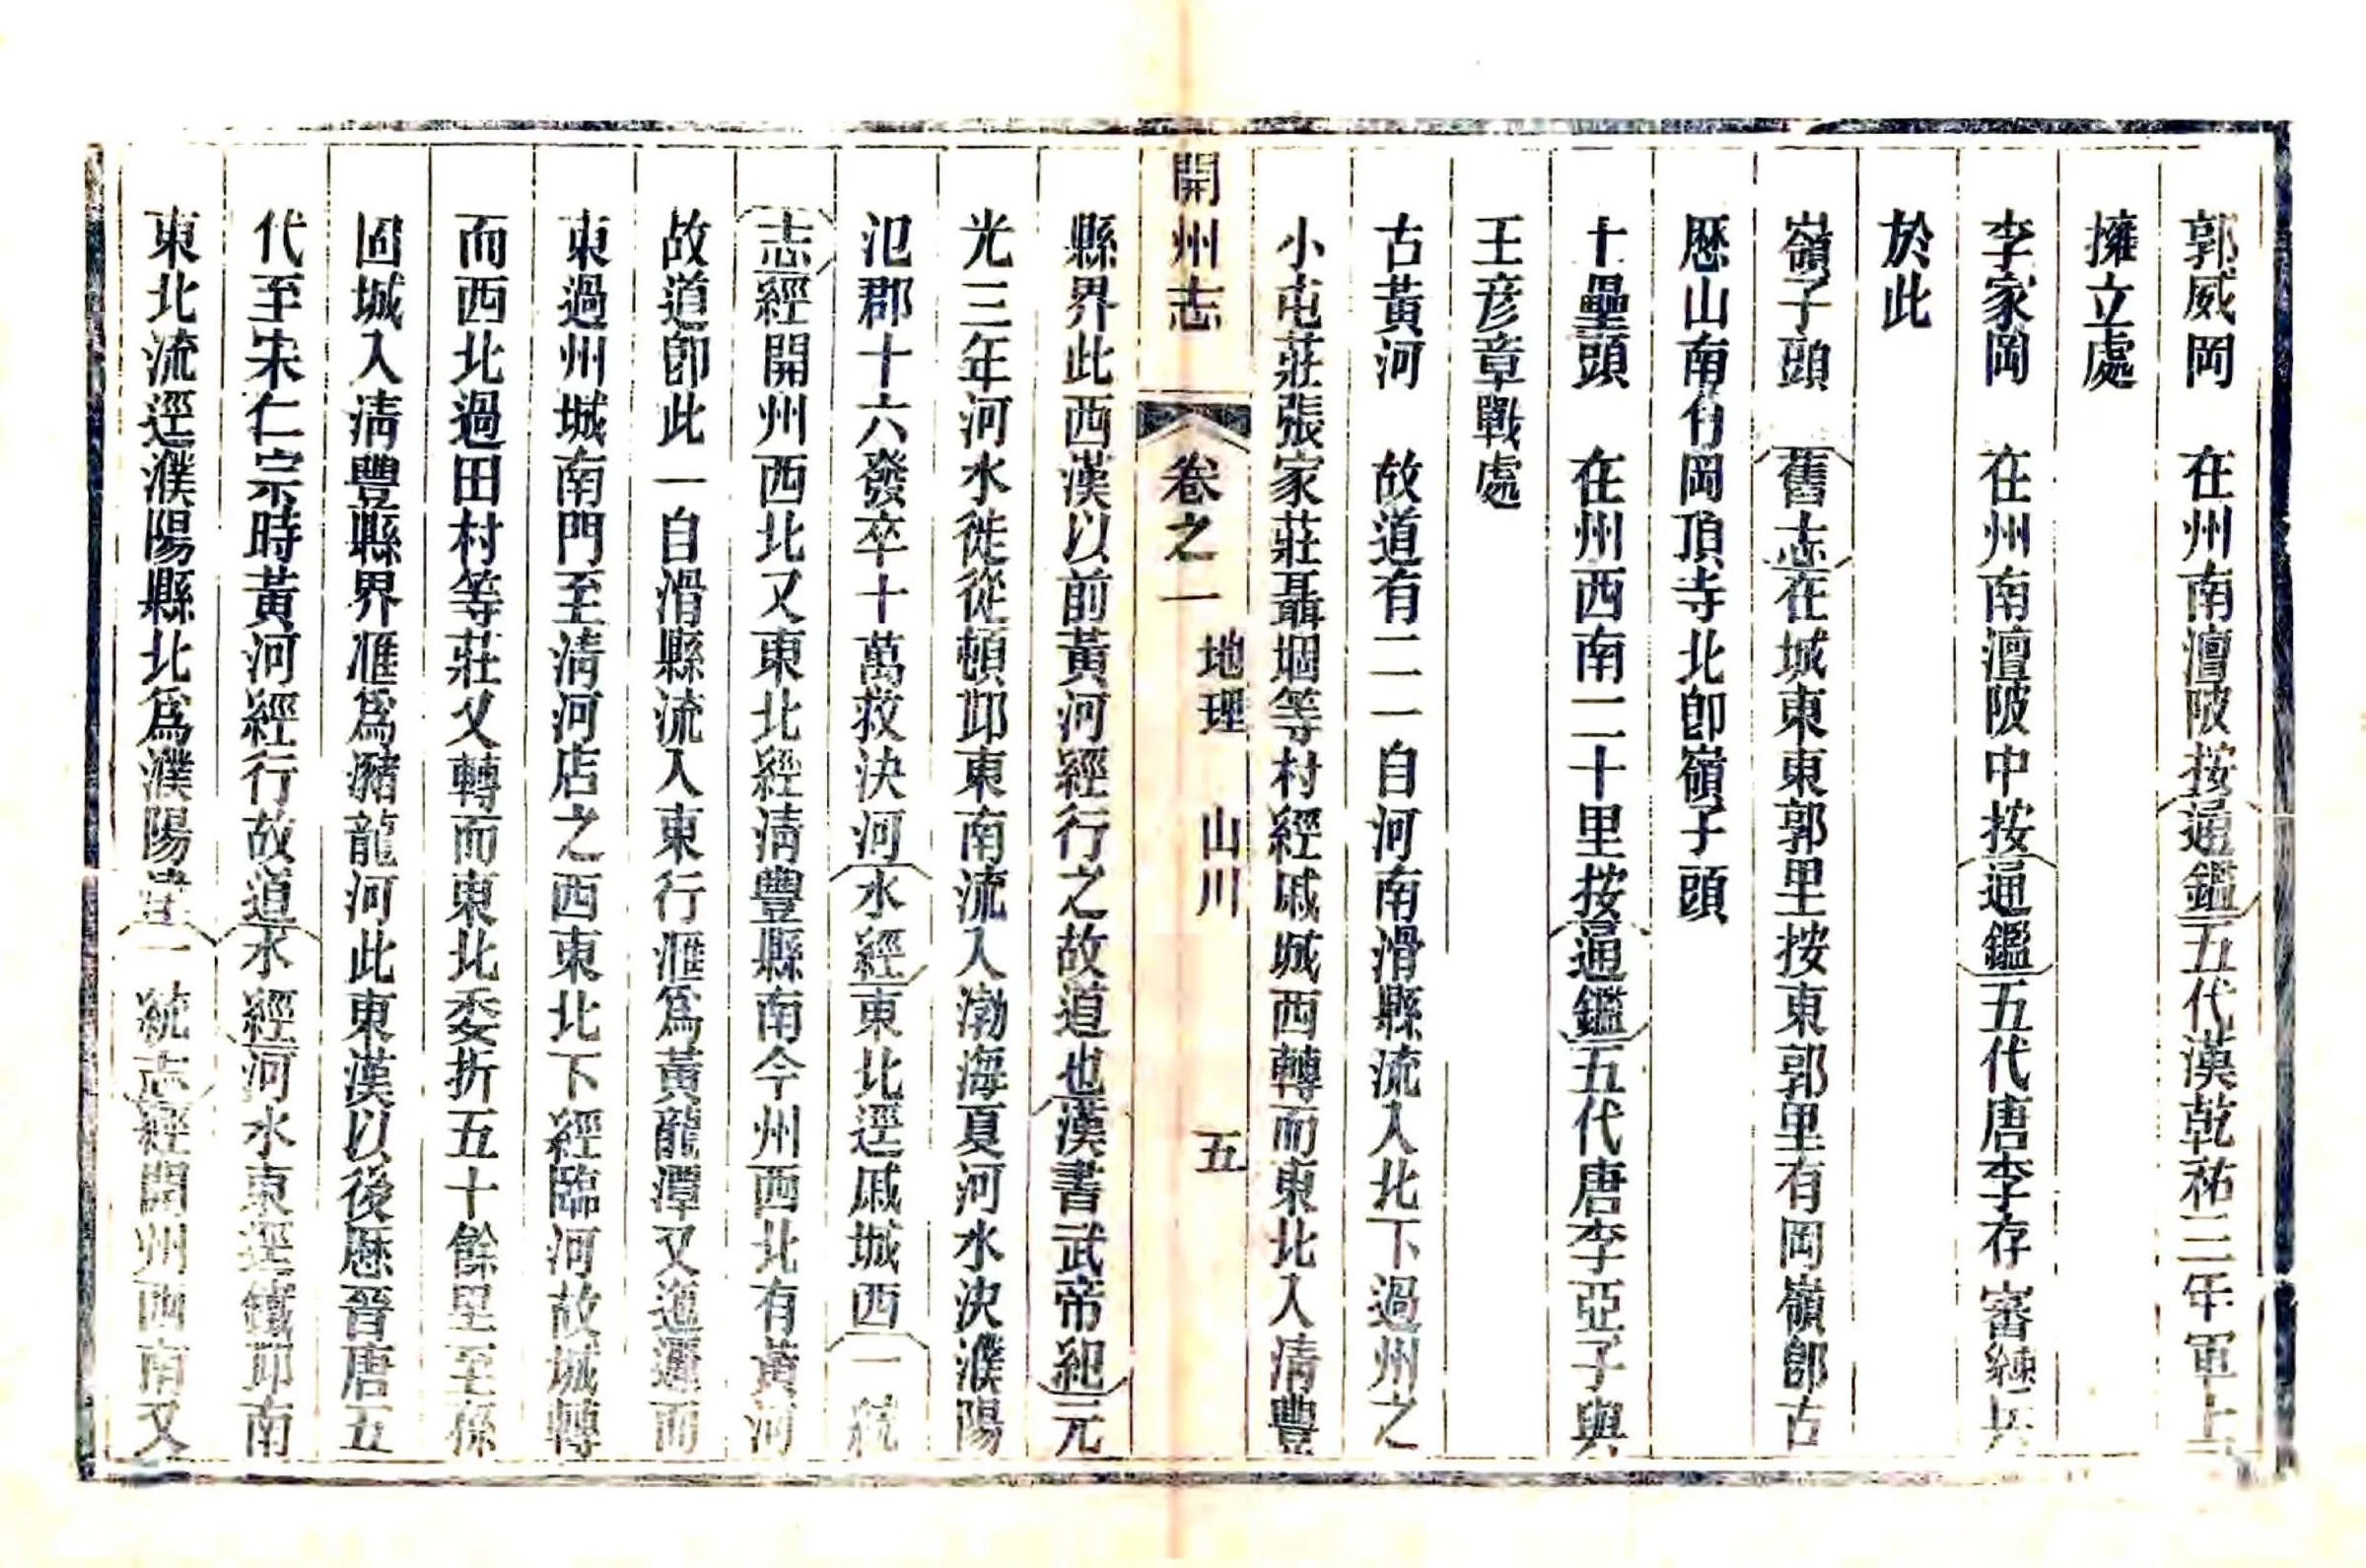 郭威岡　在州南澶陂按通鑑五代漢乾祐三年軍士
擁立處
李家岡　在州南澶陂中按通鑑五代唐李存審練兵
於此
嶺子頭　舊志在城東東郭里按東郭里有岡嶺卽古
歷山南有岡頂寺北卽嶺子頭
十壘頭　在州西南二十里按通鑑五代唐李亞子與
王彥章戰處
古黃河　故道有二一自河南滑縣流入北下過州之
小屯莊張家莊聶堌等村經戚城西轉而東北入清豐
開州志　卷之一　地理　山川　五
縣界此西漢以前黃河經行之故道也漢書武帝紀元
光三年河水徙從頓邱東南流入渤海夏河水決濮陽
氾郡十六發卒十萬救決河水經東北逕戚城西一統
志經開州西北又東北經清豐縣南今州西北有黃河
故道卽此一自滑縣流入東行滙爲黃龍潭又迤邐而
東過州城南門至清河店之西東北下經臨河故城轉
而西北過田村等莊又轉而東北委折五十餘里至孫
固城入清豐縣界滙爲瀦龍河此東漢以後歷晉唐五
代至宋仁宗時黃河經行故道水經河水東逕鐵邱南
東北流逕濮陽縣北爲濮陽津一統志經開州西南又